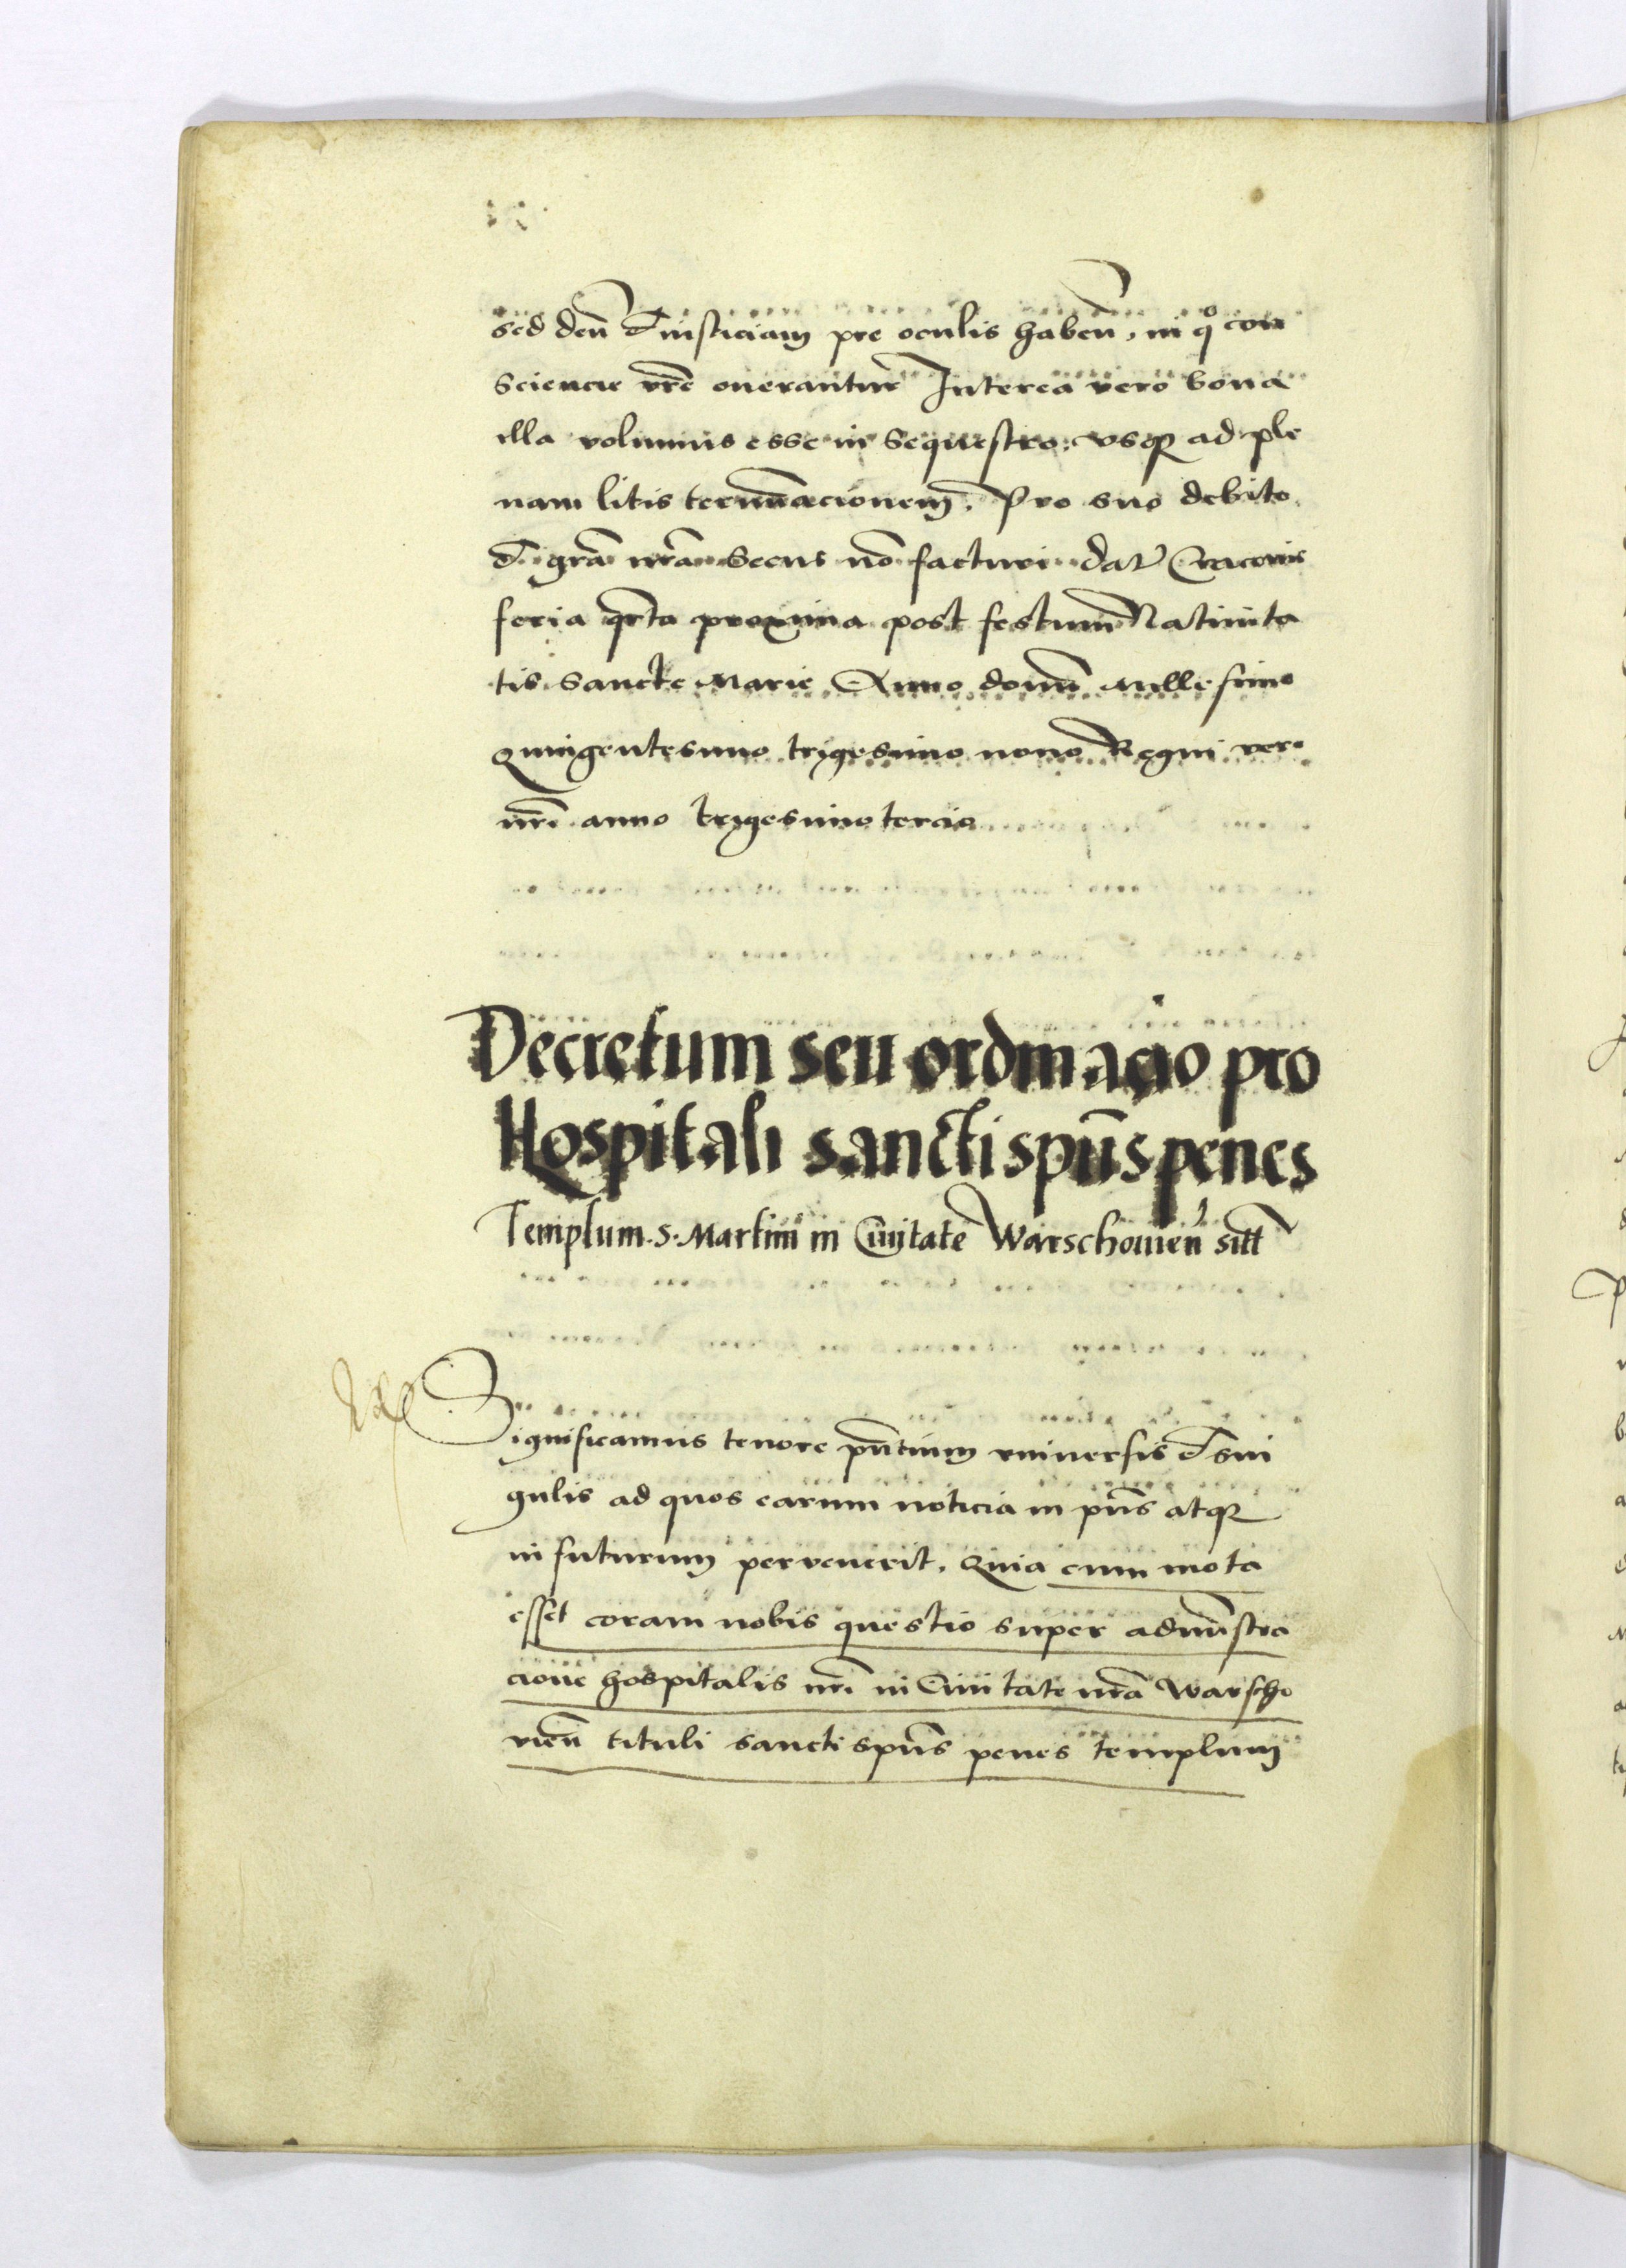 sed deū et iusticiam pre oculis habeñ, in qͦ con
sciencie vr̄e onerantur Interea vero bona
illa volumus esse in sequestro, vsqꝫ ad ple
nam litis termīacionem. Pro suo debito
et gr̄a nr̄a secus nō facturi. Dat Cracouie
feria qr̄ta proxima post festum Natiuita
tis Sancte Marie Anno domī Millesimo
Quingentesimo trigesimo nono Regni vero
nr̄i anno trigesimo tercio
Decretum seu ordinacio pro
Hospitali sancti spūs penes
Templum S. Martini in Ciuitate Warschouieñ sitt
Significamus tenore pn̄tium vniuersis et sin
gulis ad quos earum noticia in pn̄s atqꝫ
in futurum pervenerit. Quia cum mota
esset coram nobis questio super admīstra
cione hospitalis nr̄i in Ciuitate nr̄a Warscho
vieñ tituli sancti spūs penes templum